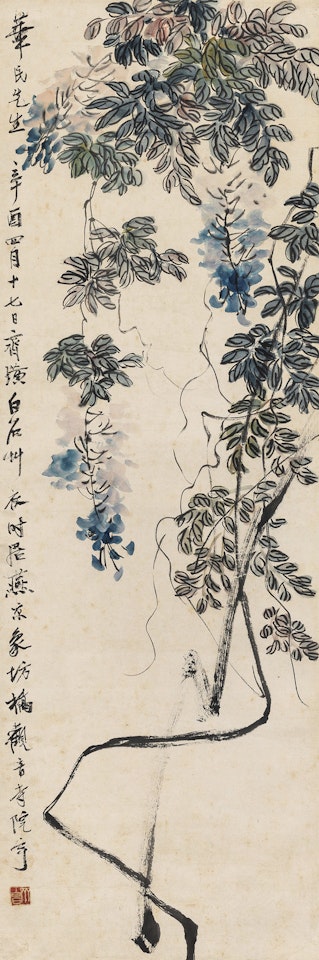 華民先生 辛酉四月十七日齊璜白石艸衣時居燕京象坊橋觀音寺院宇